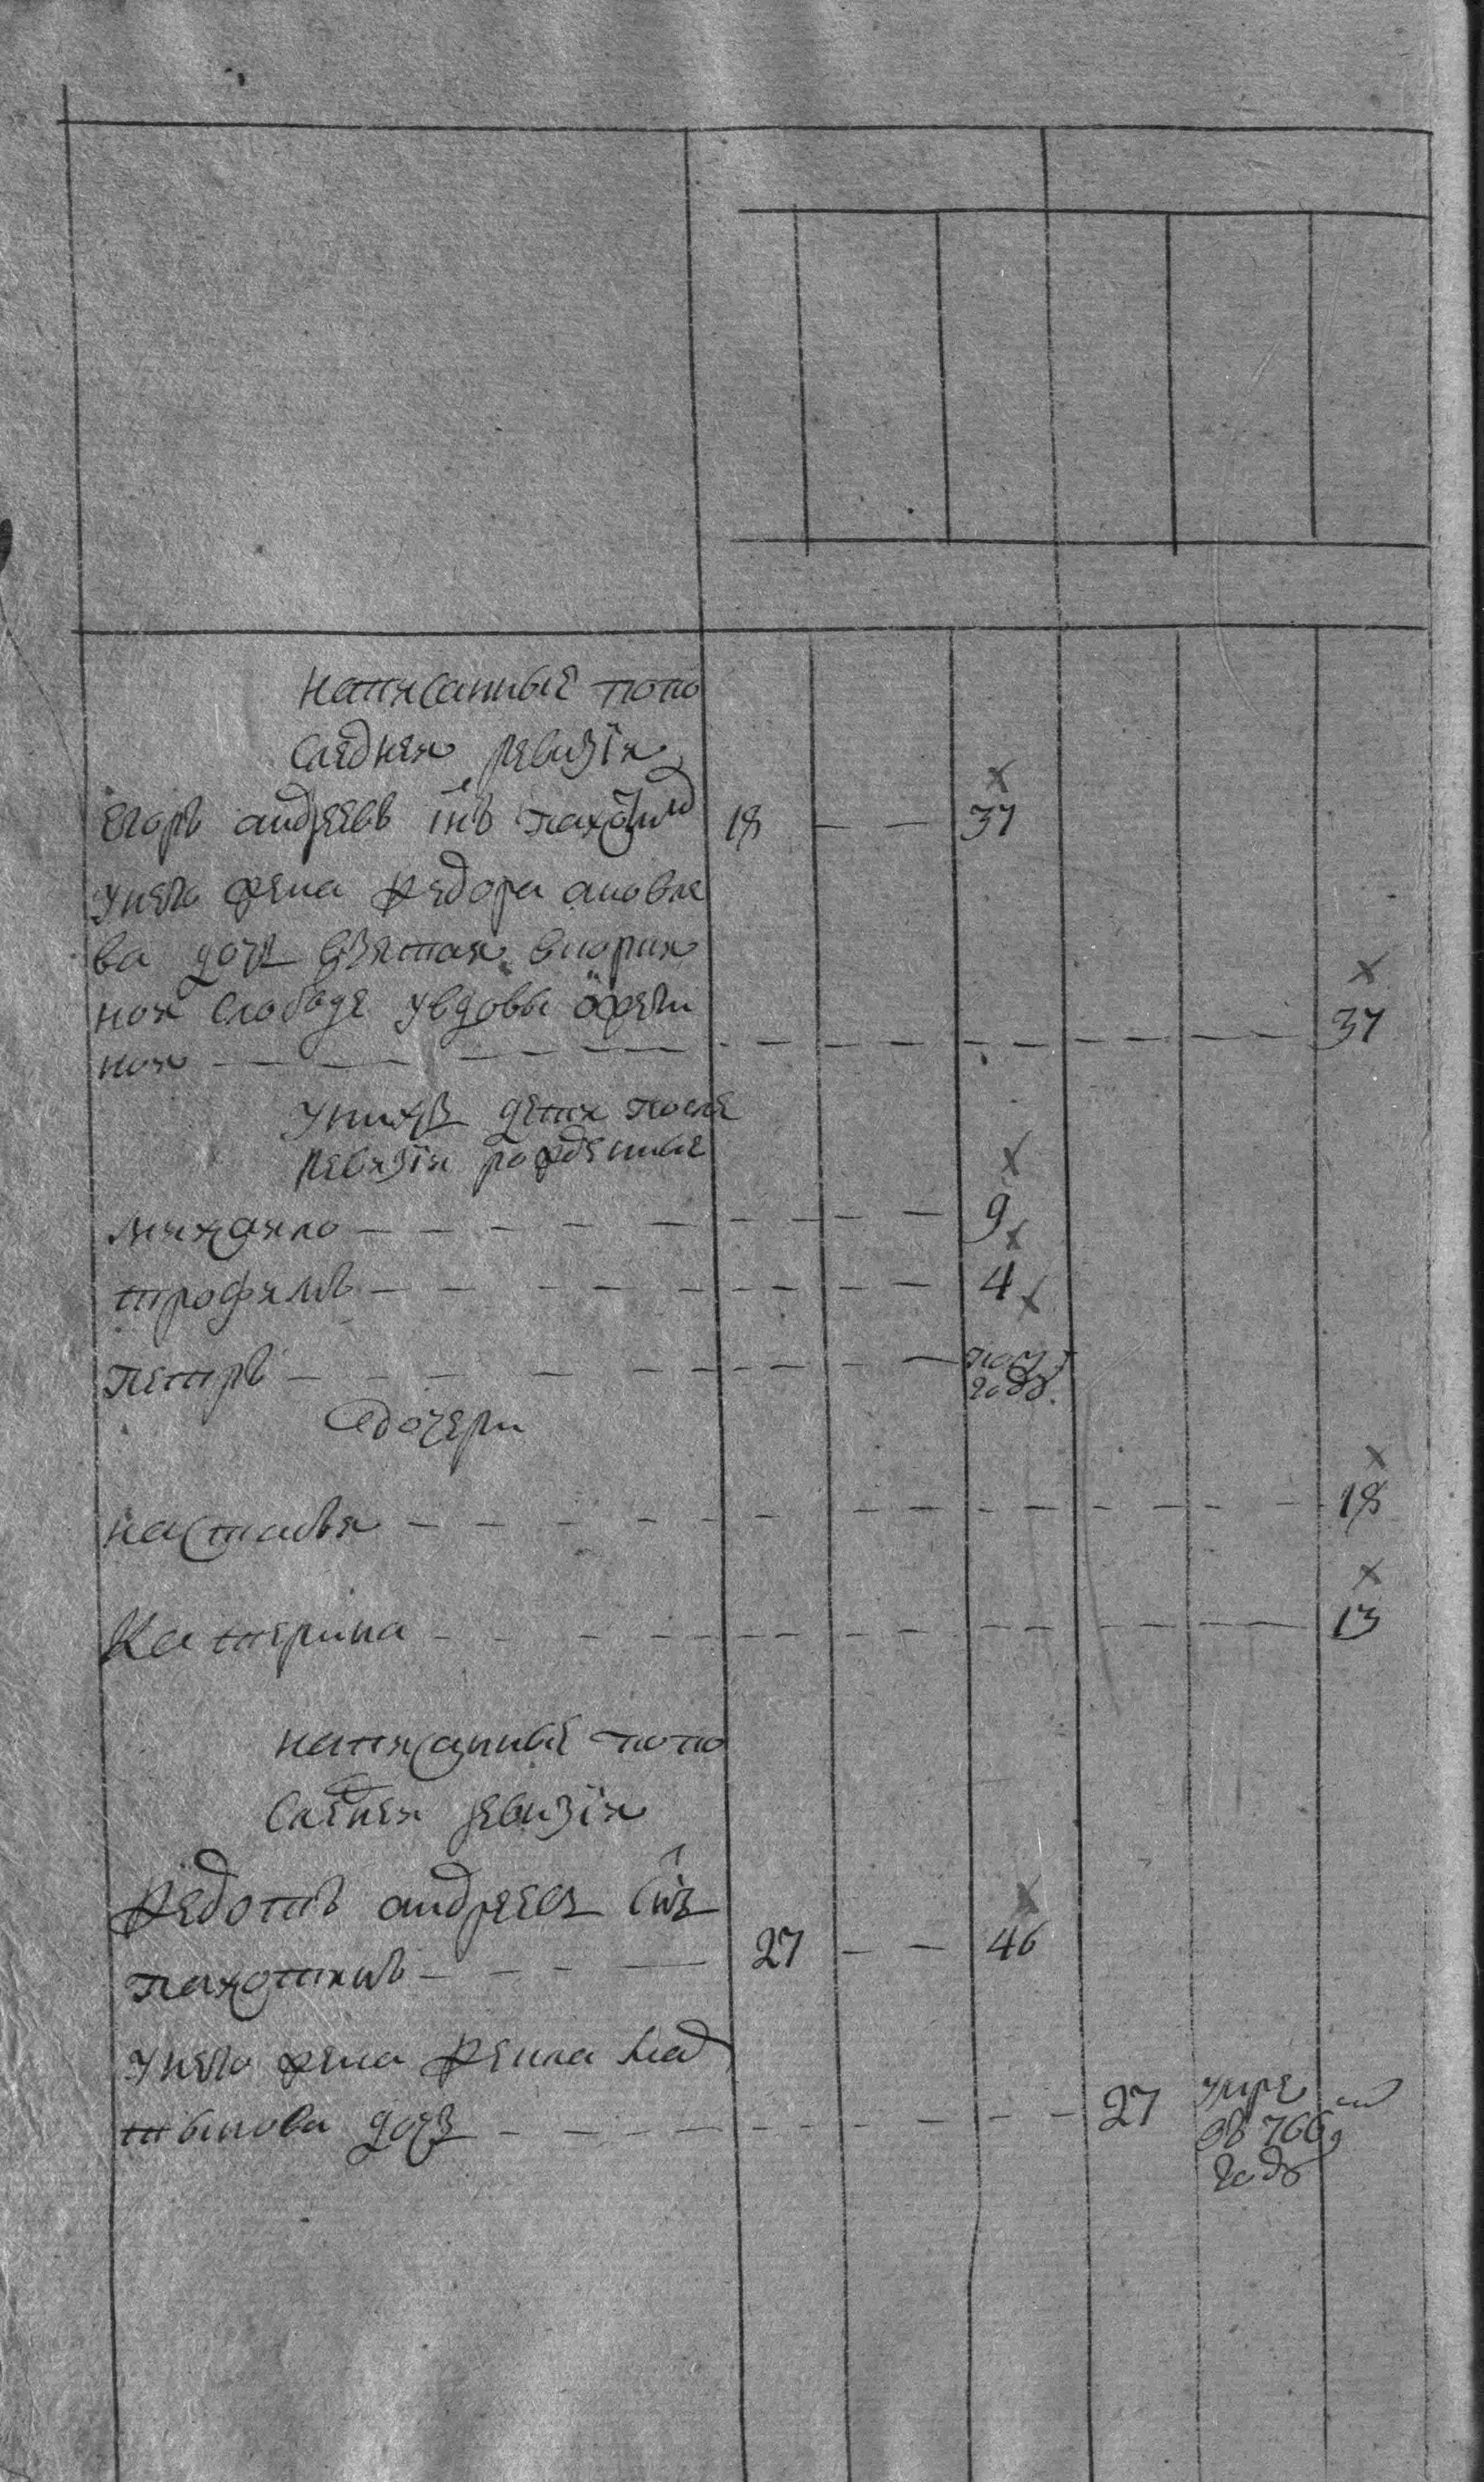 написанные попо
следней ревизiи
егоръ андреевъ сiнъ пахо 18 — — 37
у него жена федора
ва дочь взятая в
ной слободе у вдовы
ной — — — — — — — — 37
у нихъ дети после
ревизiи рожденные
михайло — — — — — — — — 9
трофимъ — — — — — — — — 4
петръ — — — — — — — — полу
году
дочери
настасья — — — — — — — — 18
катерина — — — — — — — — 13
написанные попо
следней ревизiи
федотъ андреевъ сiнъ
пахотинъ — — — — 27 — — 46
у него жена
дочь — — — — — — — — 27 умре
въ 766м
году